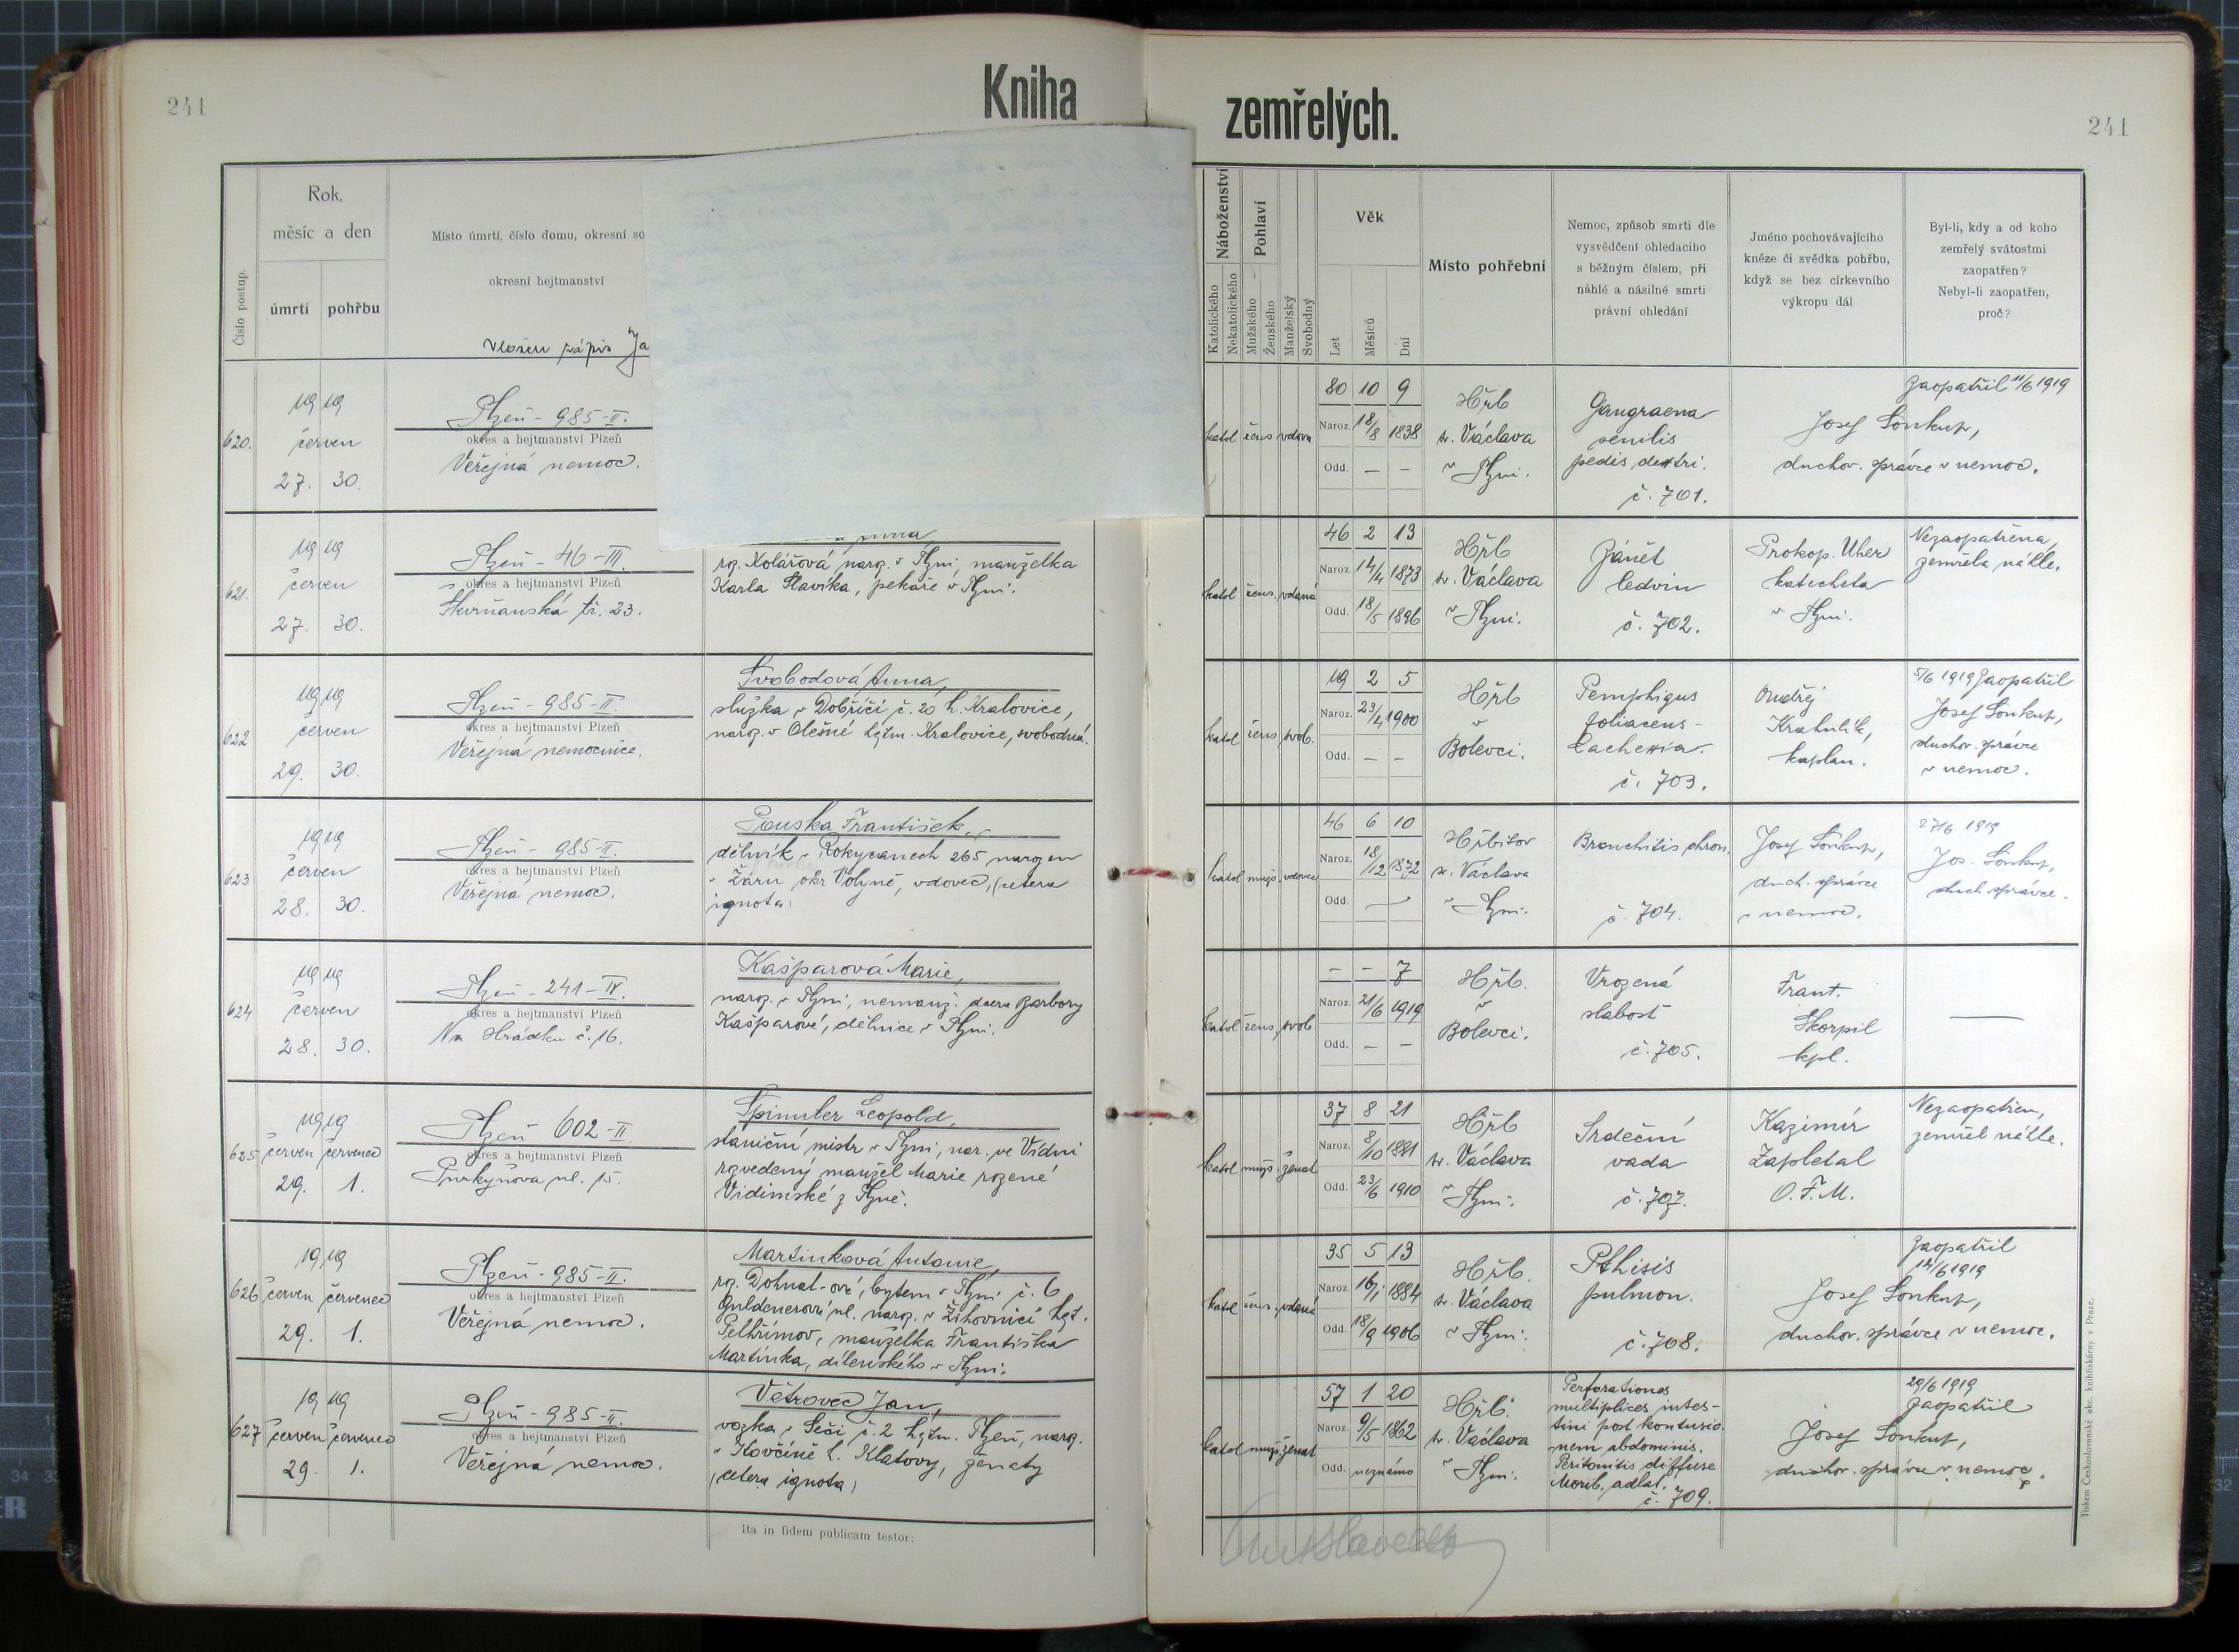 241
Kniha
zemřelých.
241
Číslo postup.
Rok,
měsíc a den
úmrtí
pohřbu
Místo úmrtí, číslo domu, okresní so
okresní hejtmanství
vložen zápis Ja
Náboženství
Katolického
Nekatolického
Pohlaví
Mužského
Ženského
Manželský
Svobodný
Věk
Let
Měsíců
Dní
Místo pohřební
Nemoc, způsob smrti dle
vysvědčení ohledacího
s běžným číslem, při
náhlé a násilné smrti
právní ohledání
Jméno pochovávajícího
kněze či svědka pohřbu,
když se bez církevního
výkropu dál
Byl-li, kdy a od koho
zemřelý svátostmi
zaopatřen?
Nebyl-li zaopatřen,
proč?
620.
1919
červen
27. 30.
Plzeň - 985-II.
okres a hejtmanství Plzeň
Veřejná nemoc.
katol žens vdova
80 10 9
Naroz. 18/8 1838
Odd. — —
Hřb
sv. Václava
v Plzni.
Gangraena
senilis
pedis dextri.
č. 701.
Zaopatřil 11/6 1919
Josef Soukup,
duchov. správce v nemoc.
621.
1919
červen
27. 30.
Plzeň - 46-III.
okres a hejtmanství Plzeň
Skvrňanská tř. 23.
roz. Kolářová naroz. v Plzni, manželka
Karla Slavíka, pekaře v Plzni.
katol žens. vdaná
46 2 13
Naroz. 14/4 1873
Odd. 18/5 1896
Hřb
sv. Václava
v Plzni.
Zánět
ledvin
č. 702.
Prokop. Uher
katecheta
v Plzni.
Nezaopatřena,
zemřela náhle.
622
1919
červen
29. 30.
Plzeň - 985-II.
okres a hejtmanství Plzeň
Veřejná nemocnice.
Svobodová Anna,
služka v Dobříči č. 20 h. Kralovice,
naroz. v Olešné hejtm. Kralovice, svobodná.
katol žens. svob.
19 2 5
Naroz. 23/4 1900
Odd. — —
Hřb
v
Bolevci.
Pemphigus
foliaceus -
Cachexia.
č. 703.
Ondřej
Krahulík,
kaplan.
5/6 1919 Zaopatřil
Josef Soukup,
duchov. správce
v nemoc.
623
1919
červen
28. 30.
Plzeň - 985-II.
okres a hejtmanství Plzeň
Veřejná nemoc.
Pouska František,
dělník v Rokycanech 265 narozen
v Žáru okr Volyně, vdovec, (cetera
ignota)
katol muž. vdovec
46 6 10
Naroz. 18/12 1872
Odd. —
Hřbitov
sv. Václava
v Plzni.
Bronchitis chron.
č. 704.
Josef Soukup,
duch. správce
v nemoc.
27/6 1919
Jos. Soukup,
duch. správce.
624
1919
červen
28. 30.
Plzeň - 241-IV.
okres a hejtmanství Plzeň
Na Hrádku č. 16.
Kašparová Marie,
naroz. v Plzni, nemanž. dcera Barbory
Kašparové, dělnice v Plzni.
katol žens. svob
– – 7
Naroz. 21/6 1919
Odd. — —
Hřb.
v
Bolevci.
Vrozená
slabost
č. 705.
Frant.
Škorpil
kpl.
—
625
1919
červen červenec
29. 1.
Plzeň 602-II
okres a hejtmanství Plzeň
Purkyňova ul. 15.
Spinnler Leopold,
staniční mistr v Plzni, nar. ve Vídni
rozvedený manžel Marie rozené
z Plzně.
katol muž. ženat
37 8 21
Naroz. 8/10 1881
Odd. 23/6 1910
Hřb
sv. Václava
v Plzni.
Srdeční
vada
č. 707.
Kazimír
Zapletal
O. F. M.
Nezaopatřen,
zemřel náhle.
626
1919
červen červenec
29. 1.
Plzeň - 985-II.
okres a hejtmanství Plzeň
Veřejná nemoc.
Martínková Antonie,
roz. Dohnal-ová, bytem v Plzni č. 6
Guldenerově ul. naroz. v Žihovnici hejt.
Pelhřimov, manželka Františka
Martínka, dílenského v Plzni.
katol žens. vdaná
35 5 13
Naroz. 16/1 1884
Odd. 18/9 1906
Hřb.
sv. Václava
v Plzni.
Pthisis
pulmon.
č. 708.
Zaopatřil
12/6 1919
Josef Soukup,
duchov. správce v nemoc.
627
1919
červen červenec
29. 1.
Plzeň - 985-II.
okres a hejtmanství Plzeň
Veřejná nemoc.
Větrovec Jan,
vozka v Seči č. 2 hejtm. Plzeň, naroz.
v Kovčíně h. Klatovy, ženatý
(cetera ignota)
katol muž. ženat
57 1 20
Naroz. 9/5 1862
Odd. neznámo
Hřb.
sv. Václava
v Plzni.
Perforationes
multiplices intes-
tini post kontusio-
nem abdominis.
Peritonitis diffuse
Morib. adlat.
č. 709.
29/6 1919
Zaopatřil
Josef Soukup,
duchov. správce v nemoc.
Ita in fidem publicam testor:
Tiskem Českoslovanské akc. knihtiskárny v Praze.